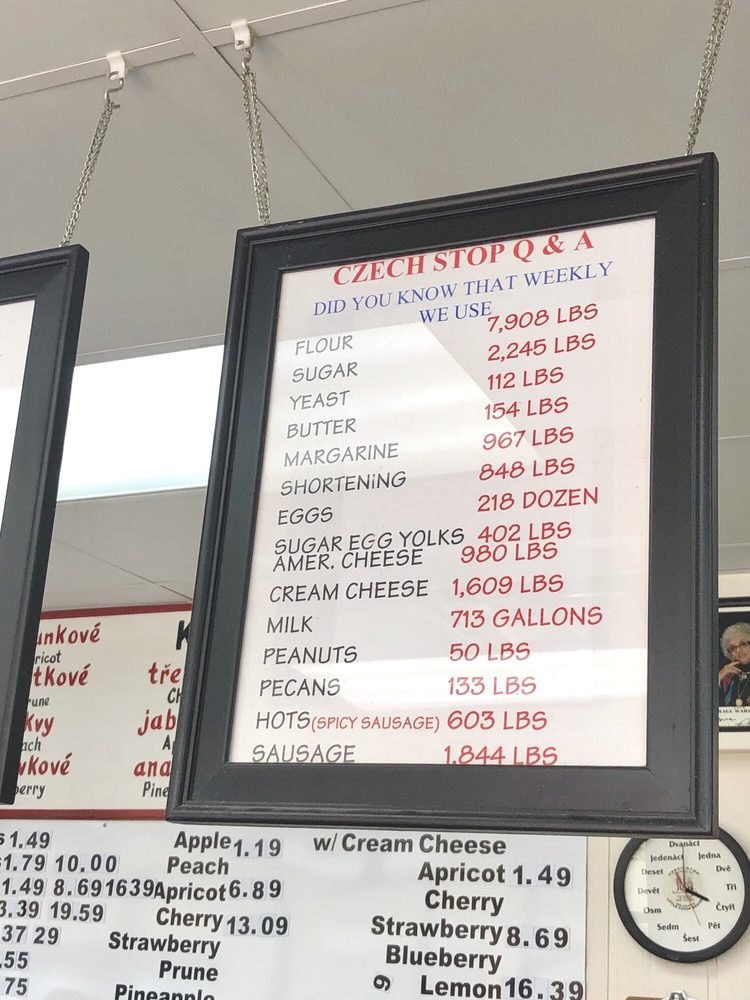 CZECH STOP Q & A
DID YOU KNOW THAT WEEKLY
WE USE
FLOUR 7,908 LBS
SUGAR 2,245 LBS
YEAST 112 LBS
BUTTER 154 LBS
MARGARINE 967 LBS
SHORTENING 848 LBS
EGGS 218 DOZEN
SUGAR EGG YOLKS 402 LBS
AMER. CHEESE 980 LBS
CREAM CHEESE 1,609 LBS
MILK 713 GALLONS
PEANUTS 50 LBS
PECANS 133 LBS
HOTS(SPICY SAUSAGE) 603 LBS
SAUSAGE 1,844 LBS
1.49
1.79 10.00
1.49 8.69 16.39
3.39 19.59
37 29
.55
75
Apple 1.19
Peach
Apricot 6.89
Cherry 13.09
Strawberry
Prune
Pineapple
w/ Cream Cheese
Apricot 1.49
Cherry
Strawberry 8.69
Blueberry
9 Lemon 16.39
Dvanáct
Jedna
Dvě
Tři
Čtyři
Pět
Šest
Sedm
Osm
Devět
Deset
Jedenáct